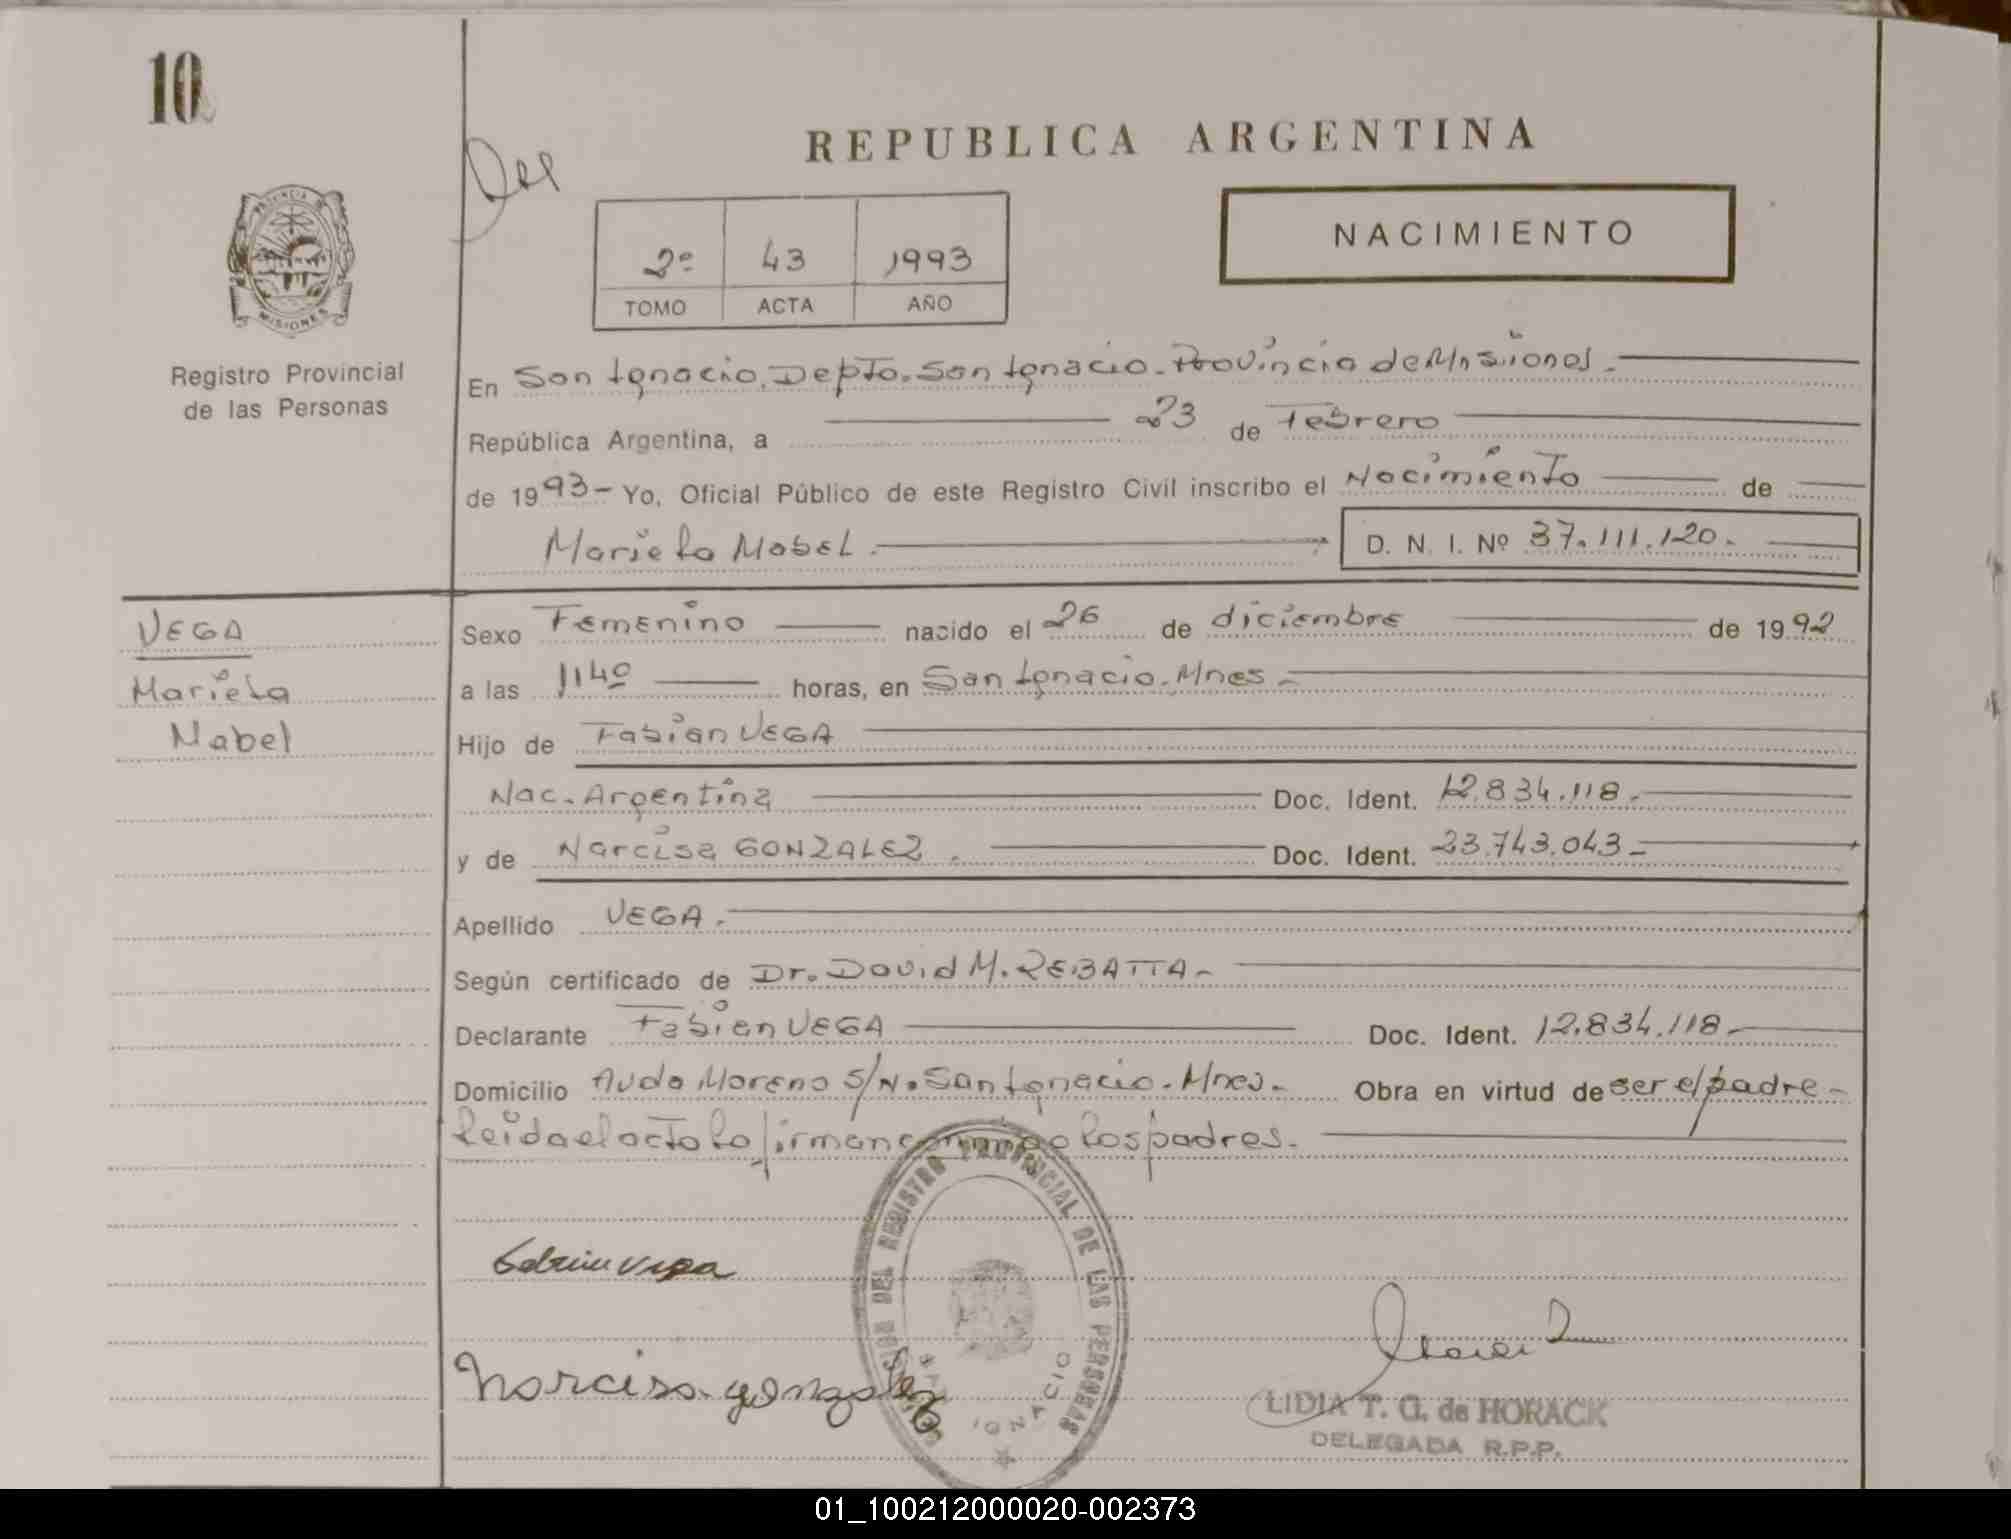 10
REPUBLICA ARGENTINA
PROVINCIA D
MISIONES
Registro Provincial
de las Personas
2º 43 1993
TOMO ACTA AÑO
NACIMIENTO
En San Ignacio. Depto. San Ignacio. Provincia de Misiones.
República Argentina, a 23 de Febrero
de 1993- Yo, Oficial Público de este Registro Civil inscribo el Nacimiento de
Mariela Mabel. D. N. I. Nº 37.111.120.
VEGA
Mariela
Mabel
Sexo Femenino nacido el 26 de diciembre de 1992
a las 1140 horas, en San Ignacio. Mnes-
Hijo de Fabian VEGA
Nac. Argentina Doc. Ident. 12.834.118.
y de Narcisa GONZALEZ. Doc. Ident. 23.743.043-
Apellido VEGA.
Según certificado de Dr. David M. REBATTA-
Declarante Fabian VEGA Doc. Ident. 12.834.118-
Domicilio Avda Moreno S/N. San Ignacio. Mnes- Obra en virtud de ser el padre-
leida el acta la firman conmigo los padres.
DEL REGISTRO PROVINCIAL DE LAS PERSONAS
SAN IGNACIO
Fabian vega
Narcisa gonzalez
LIDIA T. G. de HORACK
DELEGADA R.P.P.
01_100212000020-002373